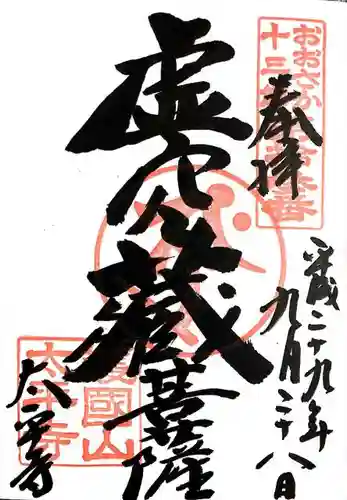 奉拝
平成二十九年
九月二十八日
虚空蔵
菩薩
太平寺
おおさか
十三
護國山
太平寺